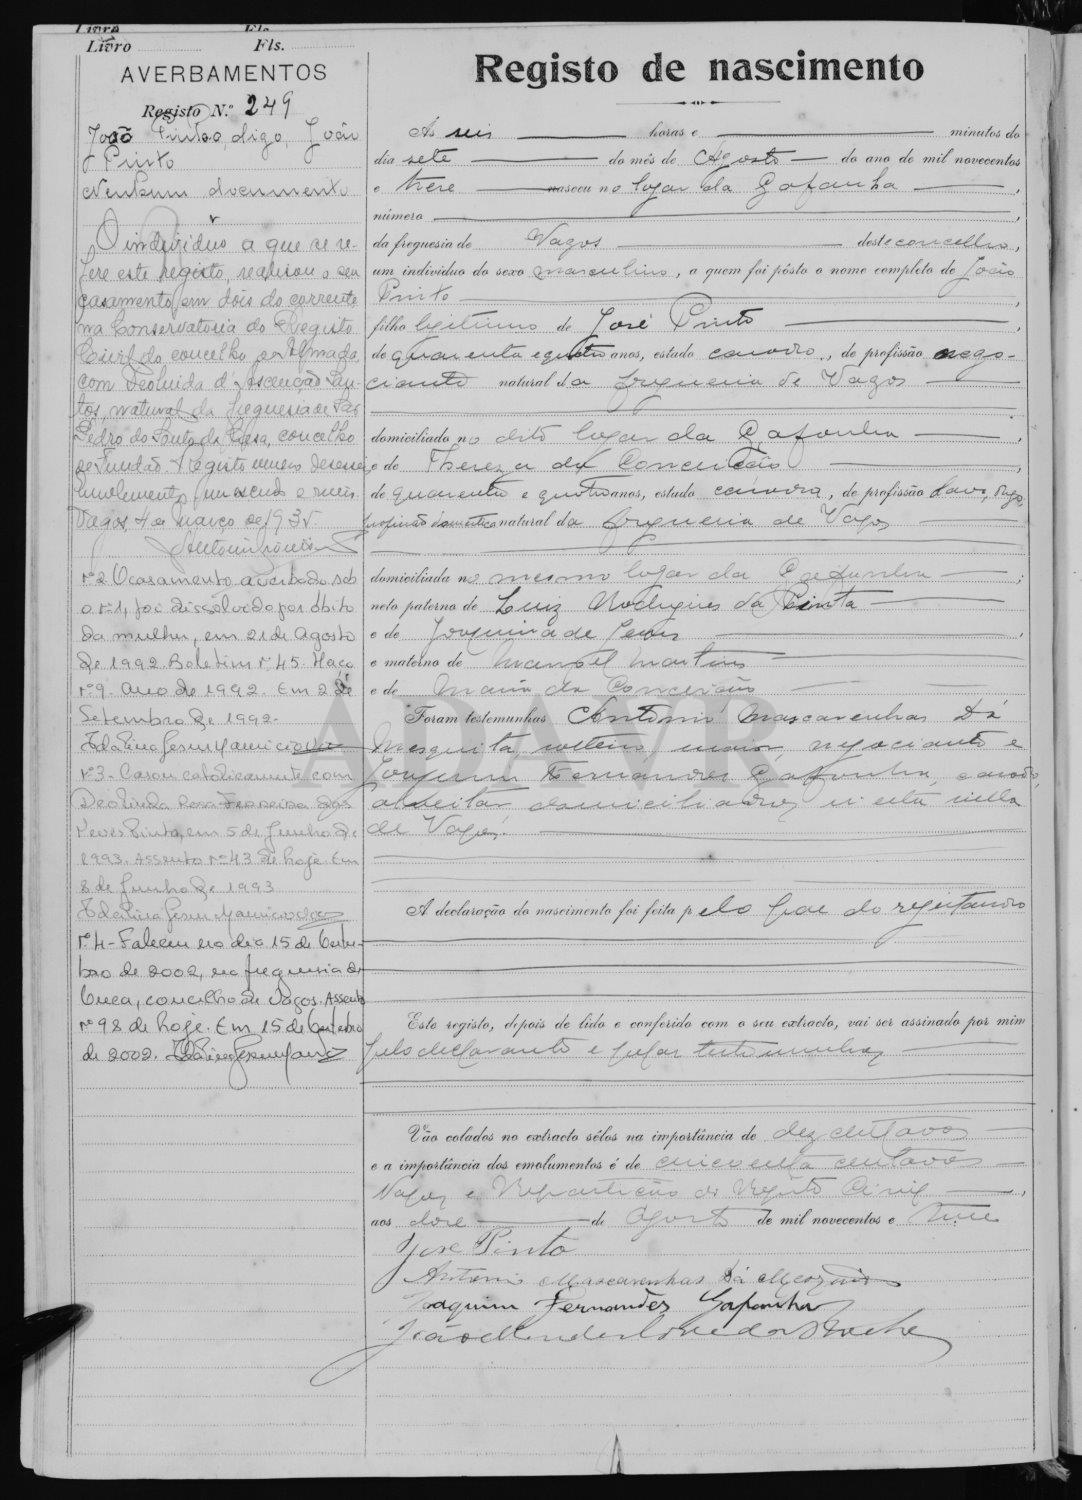 Livro Fls.
Livro Fls.
AVERBAMENTOS
Registo N.º 249
João Pintoo, digo, João
Pinto
Nenhum documento
O individuo a que se re-
fere este registo, realisou o seu
casamento em dois do corrente
na Conservatoria do Registo
Civil do concelho de Almada,
com Deolinda d'Ascenção San-
tos, natural da freguesia de São
Pedro do Souto da Casa, concelho
de Fundão. Registo numero
Emolumento, um escudo e meio.
Vagos, 4 de Março de 1935.
nº 2 O casamento averbado sob
o nº 1, foi dissolvido por óbito
da mulher, em 21 de Agosto
de 1992. Boletim nº 45. Maço
nº 9. Ano de 1992. Em 2 de
Setembro de 1992.
nº 3 - Casou catolicamente com
Deolinda Rosa Ferreira das
Neves Pinto, em 5 de Junho de
1993. Assento nº 43 de hoje. Em
8 de Junho de 1993
nº 4 - Faleceu no dia 15 de Outu-
bro de 2002, na freguesia de
Ouca, concelho de Vagos. Assento
nº 98 de hoje. Em 15 de Outubro
de 2002.
Registo de nascimento
Ás seis horas e minutos do
dia sete do mês de Agosto do ano de mil novecentos
e treze nasceu no logar da Gafanha,
número
da freguesia de Vagos deste concelho,
um individuo do sexo masculino, a quem foi pôsto o nome completo de João
Pinto
filho legitimo de José Pinto,
de quarenta e quatro anos, estado casado, de profissão nego-
ciante natural da freguesia de Vagos
domiciliado no dito logar da Gafanha,
e de Thereza da Conceição,
de quarenta e quatro anos, estado casada, de profissão digo,
profissão domestica natural da freguesia de Vagos
domiciliada no mesmo logar da Gafanha;
neto paterno de Luiz Rodrigues da Pinta
e de Joaquina de Jesus,
e materno de Manoel Martins
e de Maria da Conceição
Foram testemunhas Antonio Mascarenhas Dá
Mesquita, solteiro, maior, negociante e
Joaquim Fernandes Gafanha, casado,
domiciliados n'esta villa
de Vagos.
A declaração do nascimento foi feita pelo pae do registando
Este registo, depois de lido e conferido com o seu extracto, vai ser assinado por mim
pelo declarante e pelas testemunhas
Vão colados no extracto sêlos na importância de dez centavos
e a importância dos emolumentos é de cincoenta centavos
Vagos e Repartição do Registo Civil,
aos doze de Agosto de mil novecentos e treze
José Pinto
Antonio Mascarenhas Dá Mesquita
Joaquim Fernandes Gafanha
ADAVR